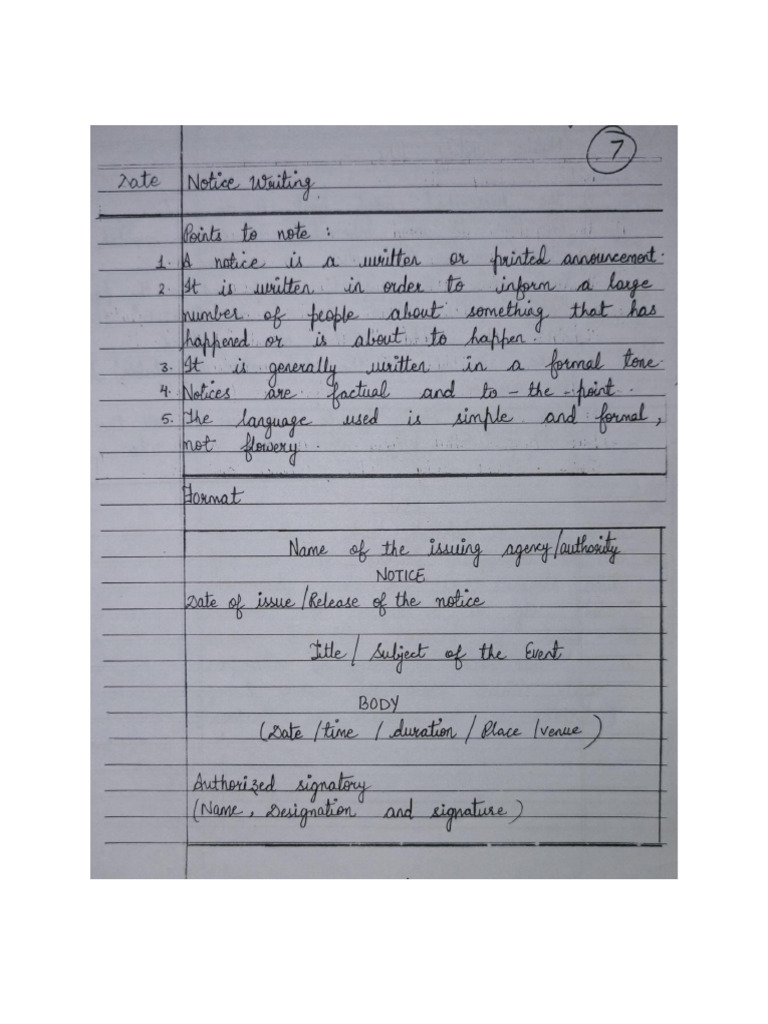 7
Date Notice Writing
Points to note :
1. A notice is a written or printed announcement.
2. It is written in order to inform a large
number of people about something that has
happened or is about to happen.
3. It is generally written in a formal tone.
4. Notices are factual and to - the - point.
5. The language used is simple and formal,
not flowery.
Format
Name of the issuing agency/authority
NOTICE
Date of issue/Release of the notice
Title/ Subject of the Event
BODY
(Date /time / duration / Place /venue)
Authorized signatory
(Name, Designation and signature)